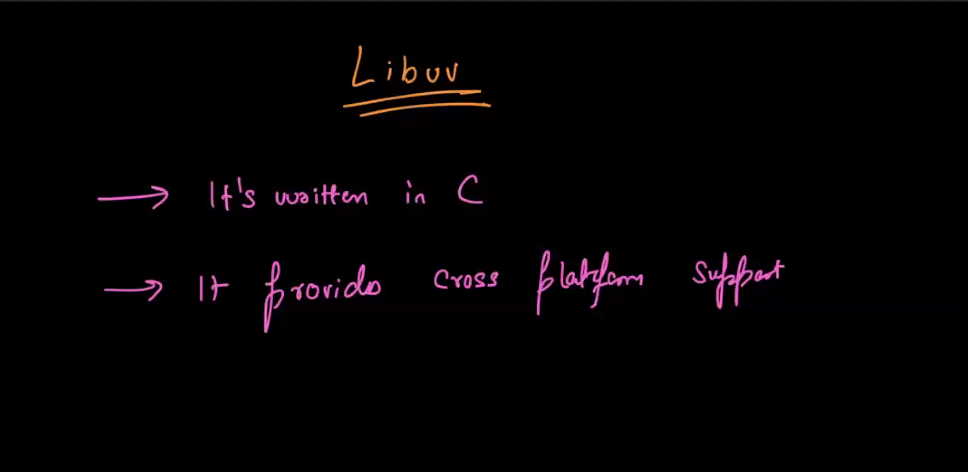 Libuv
→ It's written in C
→ It provides cross platform support